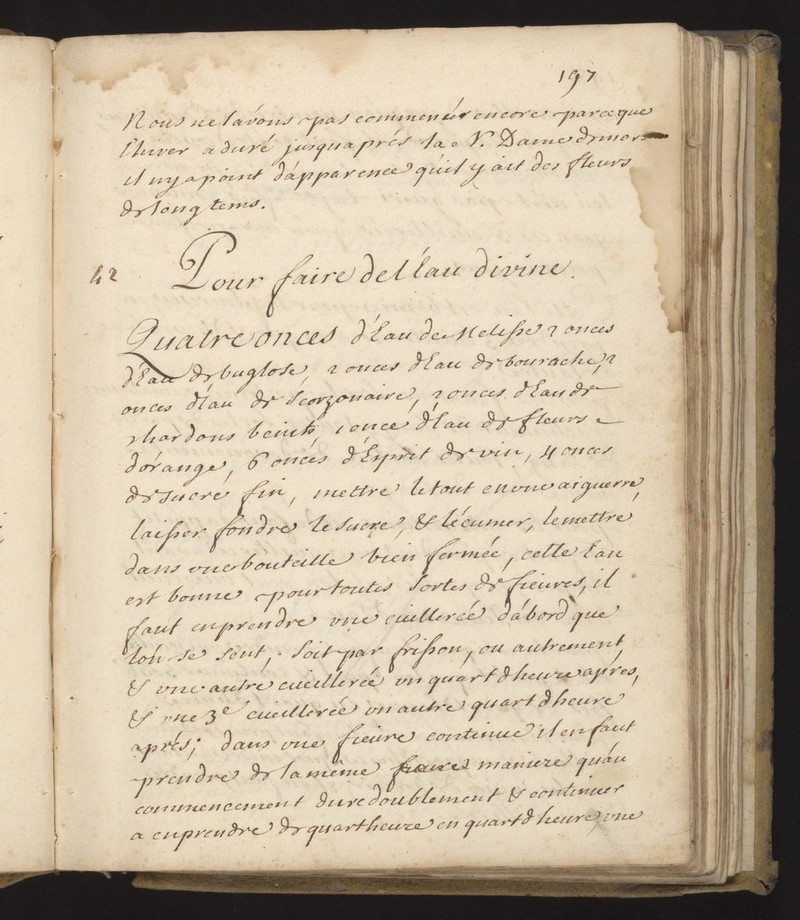 197
Nous ne lávons pas commencér encore parceque
lhiver a duré jusquaprés la N. Dame de mars
il ny a point dápparence quil y ait des fleurs
de long tems.
42 Pour faire de lÉau divine.
Quatre onces dÉau de Melisse 2 onces
dEau de buglose, 2 onces dEau de bourache, 2
onces dÉau de Scorzonaire, 2 onces dEau de
chardons benits, 1 once dEau de fleurs
dórange, 6 onces dEsprit de vin, 4 onces
de sucre fin, mettre le tout en une aiguerre,
laisser fondre le sucre, & lécumer, le mettre
dans une bouteille bien fermée, cette Eau
est bonne pour toutes sortes de fieures, il
faut en prendre une cuillereé dábord que
lón se sent, soit par frisson, ou autrement,
& une autre cueillereé un quart dheure aprés,
& une 3e cueillereé un autre quart dheure
aprés; dans une fieure continue il en faut
prendre de la même maniere quáu
commencement du redoublement & continuer
a en prendre de quartheure en quart dheure, une